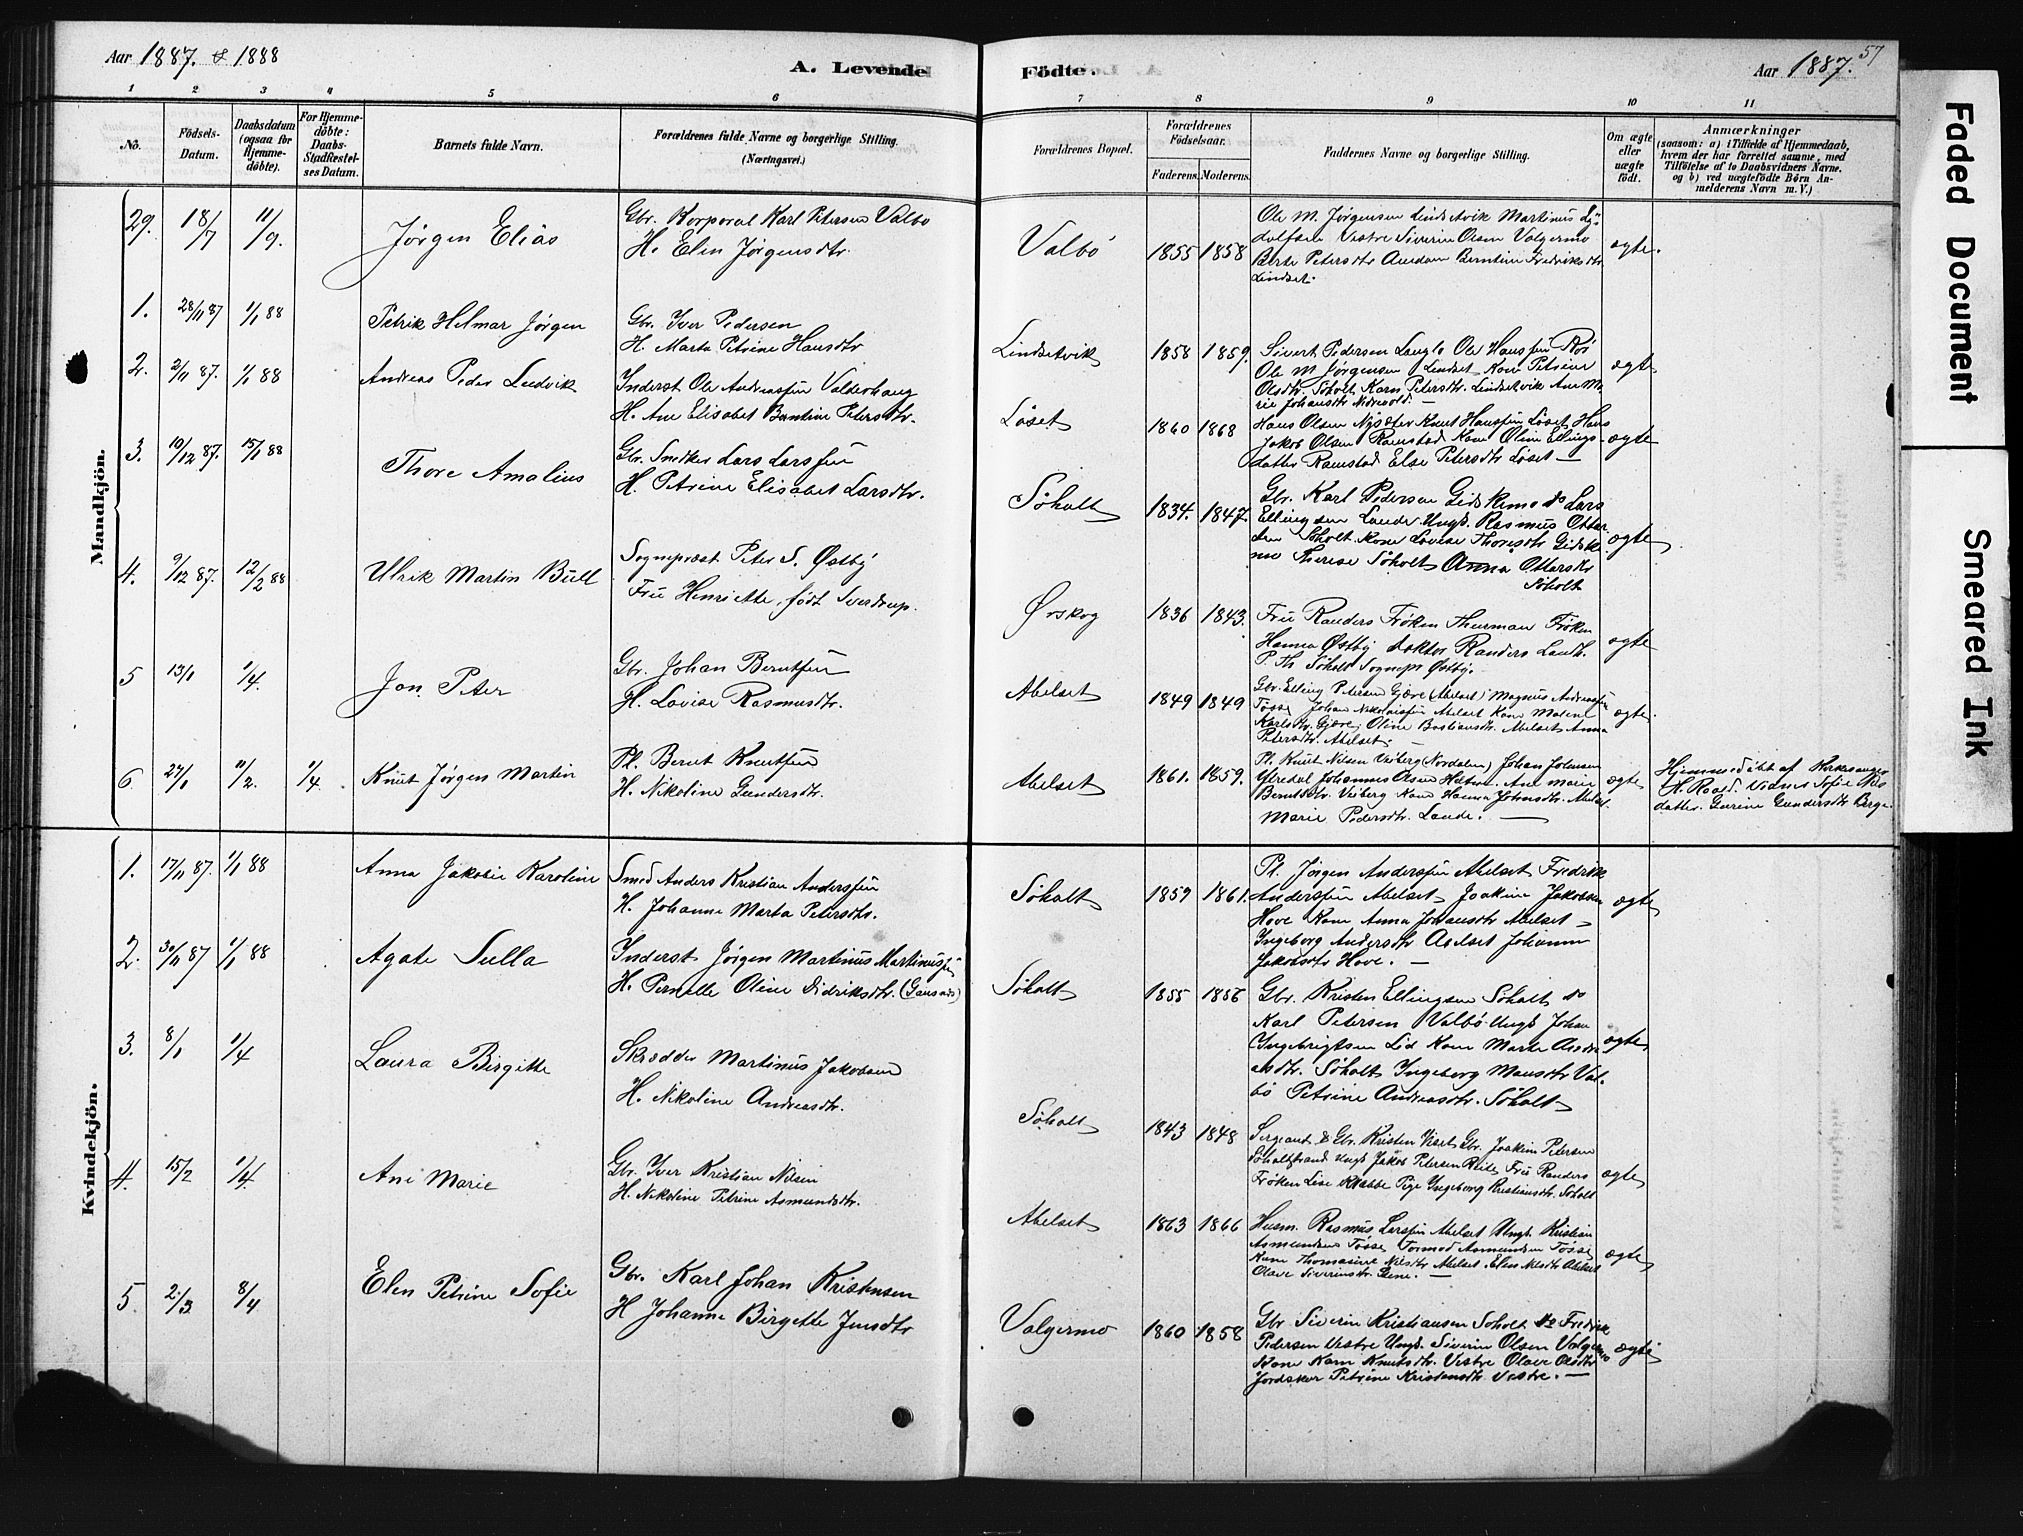 Aar 1887. & 1888
A. Levende Födte.
Aar 1887. 57
1 2 3 4 5 6 7 8 9 10 11
No.
Födsels-Datum.
Daabsdatum (ogsaa for Hjemme-döbte).
For Hjemme-döbte: Daabs-Stadfæstel-ses Datum.
Barnets fulde Navn.
Forældrenes fulde Navne og borgerlige Stilling. (Næringsvei.)
Forældrenes Bopæl.
Forældrenes Födselsaar.
Faderens. Moderens.
Faddernes Navne og borgerlige Stilling.
Om ægte eller uægte födt.
Anmærkninger
(saasom: a) i Tilfælde af Hjemmedaab,
hvem der har forrettet samme, med
Tilföielse af to Daabsvidners Navne.
og b) ved uægtefödte Börn An-
melderens Navn m. V.)
Mandkjön.
29. 18/7 11/9. Jørgen Elias
Gbr. Korporal Karl Petersen Valbø
H. Elen Jørgensdtr.
Valbø 1855 1858
Ole M. Jørgensen Lindsetvik Martinus
Vestre Siverin Olsen Valgermo
Berte Petersdtr Amdam Berntine Fredriksdtr.
Lindset.
ægte.
1. 28/11 87 1/1 88 Petrik Helmar Jørgen
Gbr. Iver Pedersen
H. Marta Petrine Hansdtr
Lindsetvik 1858 1859.
Sivert Pedersen Langlo Ole Hanssen
Ole M Jørgensen Lindset Kone Petrine
Olsdtr. Søholt, Karn Petersdtr. Lindsetvik Ane Ma
rie Johansdtr
ægte
2. 2/11 87. 1/1 88 Andreas Peder Ludvik
Inderst Ole Andreassen Valderhaug
H. Ane Elisabet Berntine Petersdtr.
Løset 1860 1868
Hans Olsen Nysæter Knut Hanssen Løset Hans
Jakob Olsen Ramstad Kone Oline Ellings-
datter Ramstad Else Petersdtr Løset —
ægte
3. 19/12 87. 15/1 88 Thore Amalius
Gbr. Snedker Lars Larssen
H. Petrine Elisabet Larsdtr.
Søholt 1834. 1847.
Gbr. Karl Pedersen Gidskemo do Lars
Ellingsen Lande Ungk. Rasmus Ottar
sen Søholt Kone Lovise Thoresdtr Gidske
mo Therese Søholt Anna Ottarsdtr
Søholt
ægte
4. 9/12 87. 12/2 88 Ulrik Martin Bull
Sognepræst Peter S. Østby
Fru Henriette, født Sverdrup.
Ørskog 1836 1843.
Fru Randers Frøken Thurman Frøken
Hanna Østby Doktor Randers Landh.
P. Th Søholt Sognepr Østby.
ægte
5 13/1 1/4. Jon Peter
Gbr. Johan Berntsen
H. Lovise Rasmusdtr.
Abelset 1849 1849
Gbr. Elling Petersen Gjære (Abelset) Magnus Andreassen
Tøsse Johan Nikolaissen Abelset Kone Malene
Karlsdtr. Gjære, Oline Bastiansdtr. Abelset Anna
Petersdtr. Abelset. —
ægte.
6 24/1 11/2. 1/4 Knut Jørgen Martin
Pl. Bernt Knutsen
H. Nikoline Gundersdtr.
Abelset 1861. 1859.
Pl. Knut Nilsen Viberg (Nordalen) Johan Johnsen
Ytredal Johannes Olsen Ane Marie
Berntsdtr. Viberg Kone Hanna Johnsdtr. Abelset.
Marie Pedersdtr. Lande. —
ægte
Hjemmedøbt af Kirkesanger
H. Raad. Vidner Sofie
datter. Gurine Gundersdtr Berge.
Kvindekjön.
1. 17/11 87. 1/1 88 Anna Jakobie Karoline
Smed Anders Kristian Anderssen
H. Johanne Marta Petersdtr.
Søholt 1859 1861.
Pl. Jørgen Anderssen Abelset Fredrik
Anderssen Abelset Joakim Jakobsen
Hove Kone Anna Johansdtr Abelset —
Ingeborg Andersdtr Abelset Johanna
Jakobsdtr Hove. —
ægte
2. 30/11 87 1/1 88 Agate Sulla
Inderst Jørgen Martinus Martinussen
H. Pernelle Oline Didriksdtr.
Søholt 1855 1856
Gbr. Kristen Ellingsen Søholt do
Karl Petersen Valbø Ungk Johan
Ingebrigtsen Lid Kone Marte Andre
asdtr. Søholt Ingeborg Monsdtr Val-
bø Petrine Andreasdtr. Søholt
ægte
3. 8/1 1/4 Laura Birgitte
Skrædder Martinus Jakobsen
H. Nikoline Andreasdtr.
Søholt 1843 1848
Sergeant & Gbr. Kristen Viset Gbr. Joakim Petersen
Søholtstrand Ungk Jakob Petersen Fru Randers
Frøken Lise Krabbe Pige Ingeborg Kristiansdtr. Søholt
ægte
4. 15/2 1/4. Ane Marie
Gbr. Iver Kristian Nilsen
H. Nikoline Petrine Asmundsdtr.
Abelset 1863 1866
Husm. Rasmus Larssen Abelset Ungk. Kristian
Asmundsen Tøsse Tormod Asmundsen Tøsse
Kone Thomasine Nilsdtr Abelset Elen Nilsdtr Abelset
Olave Siverinsdtr. —
ægte
5. 2/3 8/4 Elen Petrine Sofie
Gbr. Karl Johan Kristensen
H Johanne Birgitte Jensdtr
Valgermo 1860 1858
Gbr Siverin Kristiansen Søholt do Fredrik
Pedersen Vestre Ungk. Siverin Olsen Valgermo
Kone Karn Knutsdtr. Vestre Olave Olsdtr
Jordskar Petrine Kristensdtr Vestre. —
ægte
Faded Document
Smeared Ink